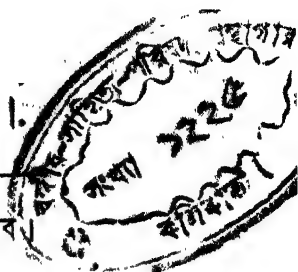 বঙ্গীয় সাহিত্য পরিষৎ গ্রন্থাগার
সংখ্যা ১২২৫
কলিকাতা